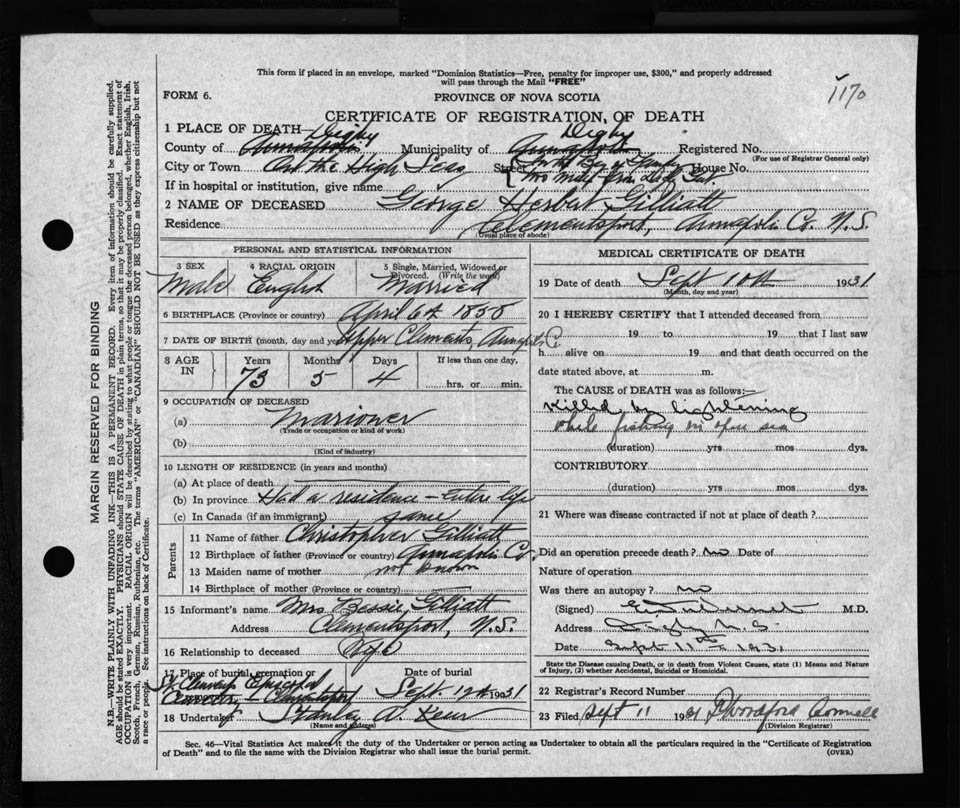 This form if placed in an envelope, marked "Dominion Statistics—Free, penalty for improper use, $300," and properly addressed
will pass through the Mail "FREE"
FORM 6.
PROVINCE OF NOVA SCOTIA
1170
CERTIFICATE OF REGISTRATION OF DEATH
1 PLACE OF DEATH— Digby Digby
County of Annapolis Municipality of Annapolis Registered No.
(For use of Registrar General only)
City or Town On the High Seas Street In the Bay of Fundy House No.
two miles from Digby Gut.
If in hospital or institution, give name
2 NAME OF DECEASED George Herbert Gilliatt
Residence Clementsport, Annapolis Co. N.S.
(Usual place of abode)
PERSONAL AND STATISTICAL INFORMATION
3 SEX 4 RACIAL ORIGIN 5 Single, Married, Widowed or
Divorced. (Write the word)
Male English Married
6 BIRTHPLACE (Province or country) April 6th 1858
7 DATE OF BIRTH (month, day and year) Upper Clements, Annapolis Co
8 AGE IN Years Months Days If less than one day,
73 5 4 hrs. or min.
9 OCCUPATION OF DECEASED
(a) Marioner
(Trade or occupation or kind of work)
(b)
(Kind of industry)
10 LENGTH OF RESIDENCE (in years and months)
(a) At place of death
(b) In province Had a residence - entire life
(c) In Canada (if an immigrant) same
Parents
11 Name of father Christopher Gilliatt
12 Birthplace of father (Province or country) Annapolis Co.
13 Maiden name of mother not known
14 Birthplace of mother (Province or country)
15 Informant's name Mrs Bessie Gilliatt
Address Clementsport, N.S.
16 Relationship to deceased Wife
17 Place of burial, cremation or Date of burial
St Clements Episcopal
Cemetery - Clementsport Sept. 12th 1931
18 Undertaker Stanley A.
(Name and address)
MEDICAL CERTIFICATE OF DEATH
19 Date of death Sept 10th 1931
(Month, day and year)
20 I HEREBY CERTIFY that I attended deceased from
19 to 19 that I last saw
h alive on 19 and that death occurred on the
date stated above, at m.
The CAUSE of DEATH was as follows:—
Killed by lightening
while fishing in open sea
(duration) yrs mos dys.
CONTRIBUTORY
(duration) yrs mos dys.
21 Where was disease contracted if not at place of death?
Did an operation precede death? no Date of
Nature of operation
Was there an autopsy? no
(Signed) M.D.
Address Digby N.S.
Date Sept 11th 1931
State the Disease causing Death, or in death from Violent Causes, state (1) Means and Nature
of Injury, (2) whether Accidental, Suicidal or Homicidal.
22 Registrar's Record Number
23 Filed Sept 11 1931
(Division Registrar)
Sec. 46—Vital Statistics Act makes it the duty of the Undertaker or person acting as Undertaker to obtain all the particulars required in the "Certificate of Registration
of Death" and to file the same with the Division Registrar who shall issue the burial permit. (OVER)
MARGIN RESERVED FOR BINDING
N.B.—WRITE PLAINLY WITH UNFADING INK—THIS IS A PERMANENT RECORD. Every item of information should be carefully supplied.
AGE should be stated EXACTLY. PHYSICIANS should STATE CAUSE OF DEATH in plain terms, so that it may be properly classified. Exact statement of
OCCUPATION is very important. RACIAL ORIGIN will be described by stating to what people or tongue the deceased person belonged, whether English, Irish,
Scotch, French, German, Russian, Ruthenian, etc. The terms "AMERICAN" or "CANADIAN" SHOULD NOT BE USED as they express citizenship but not
a race or people. See instructions on back of Certificate.